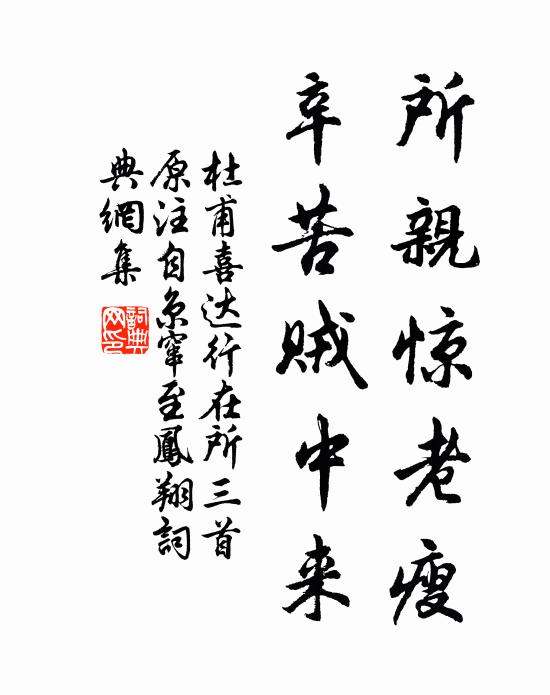 所親惊老瘦
辛苦贼中来
杜甫喜达行在所三首
原注自京窜至鳳翔詞
典網集
詞典
网印